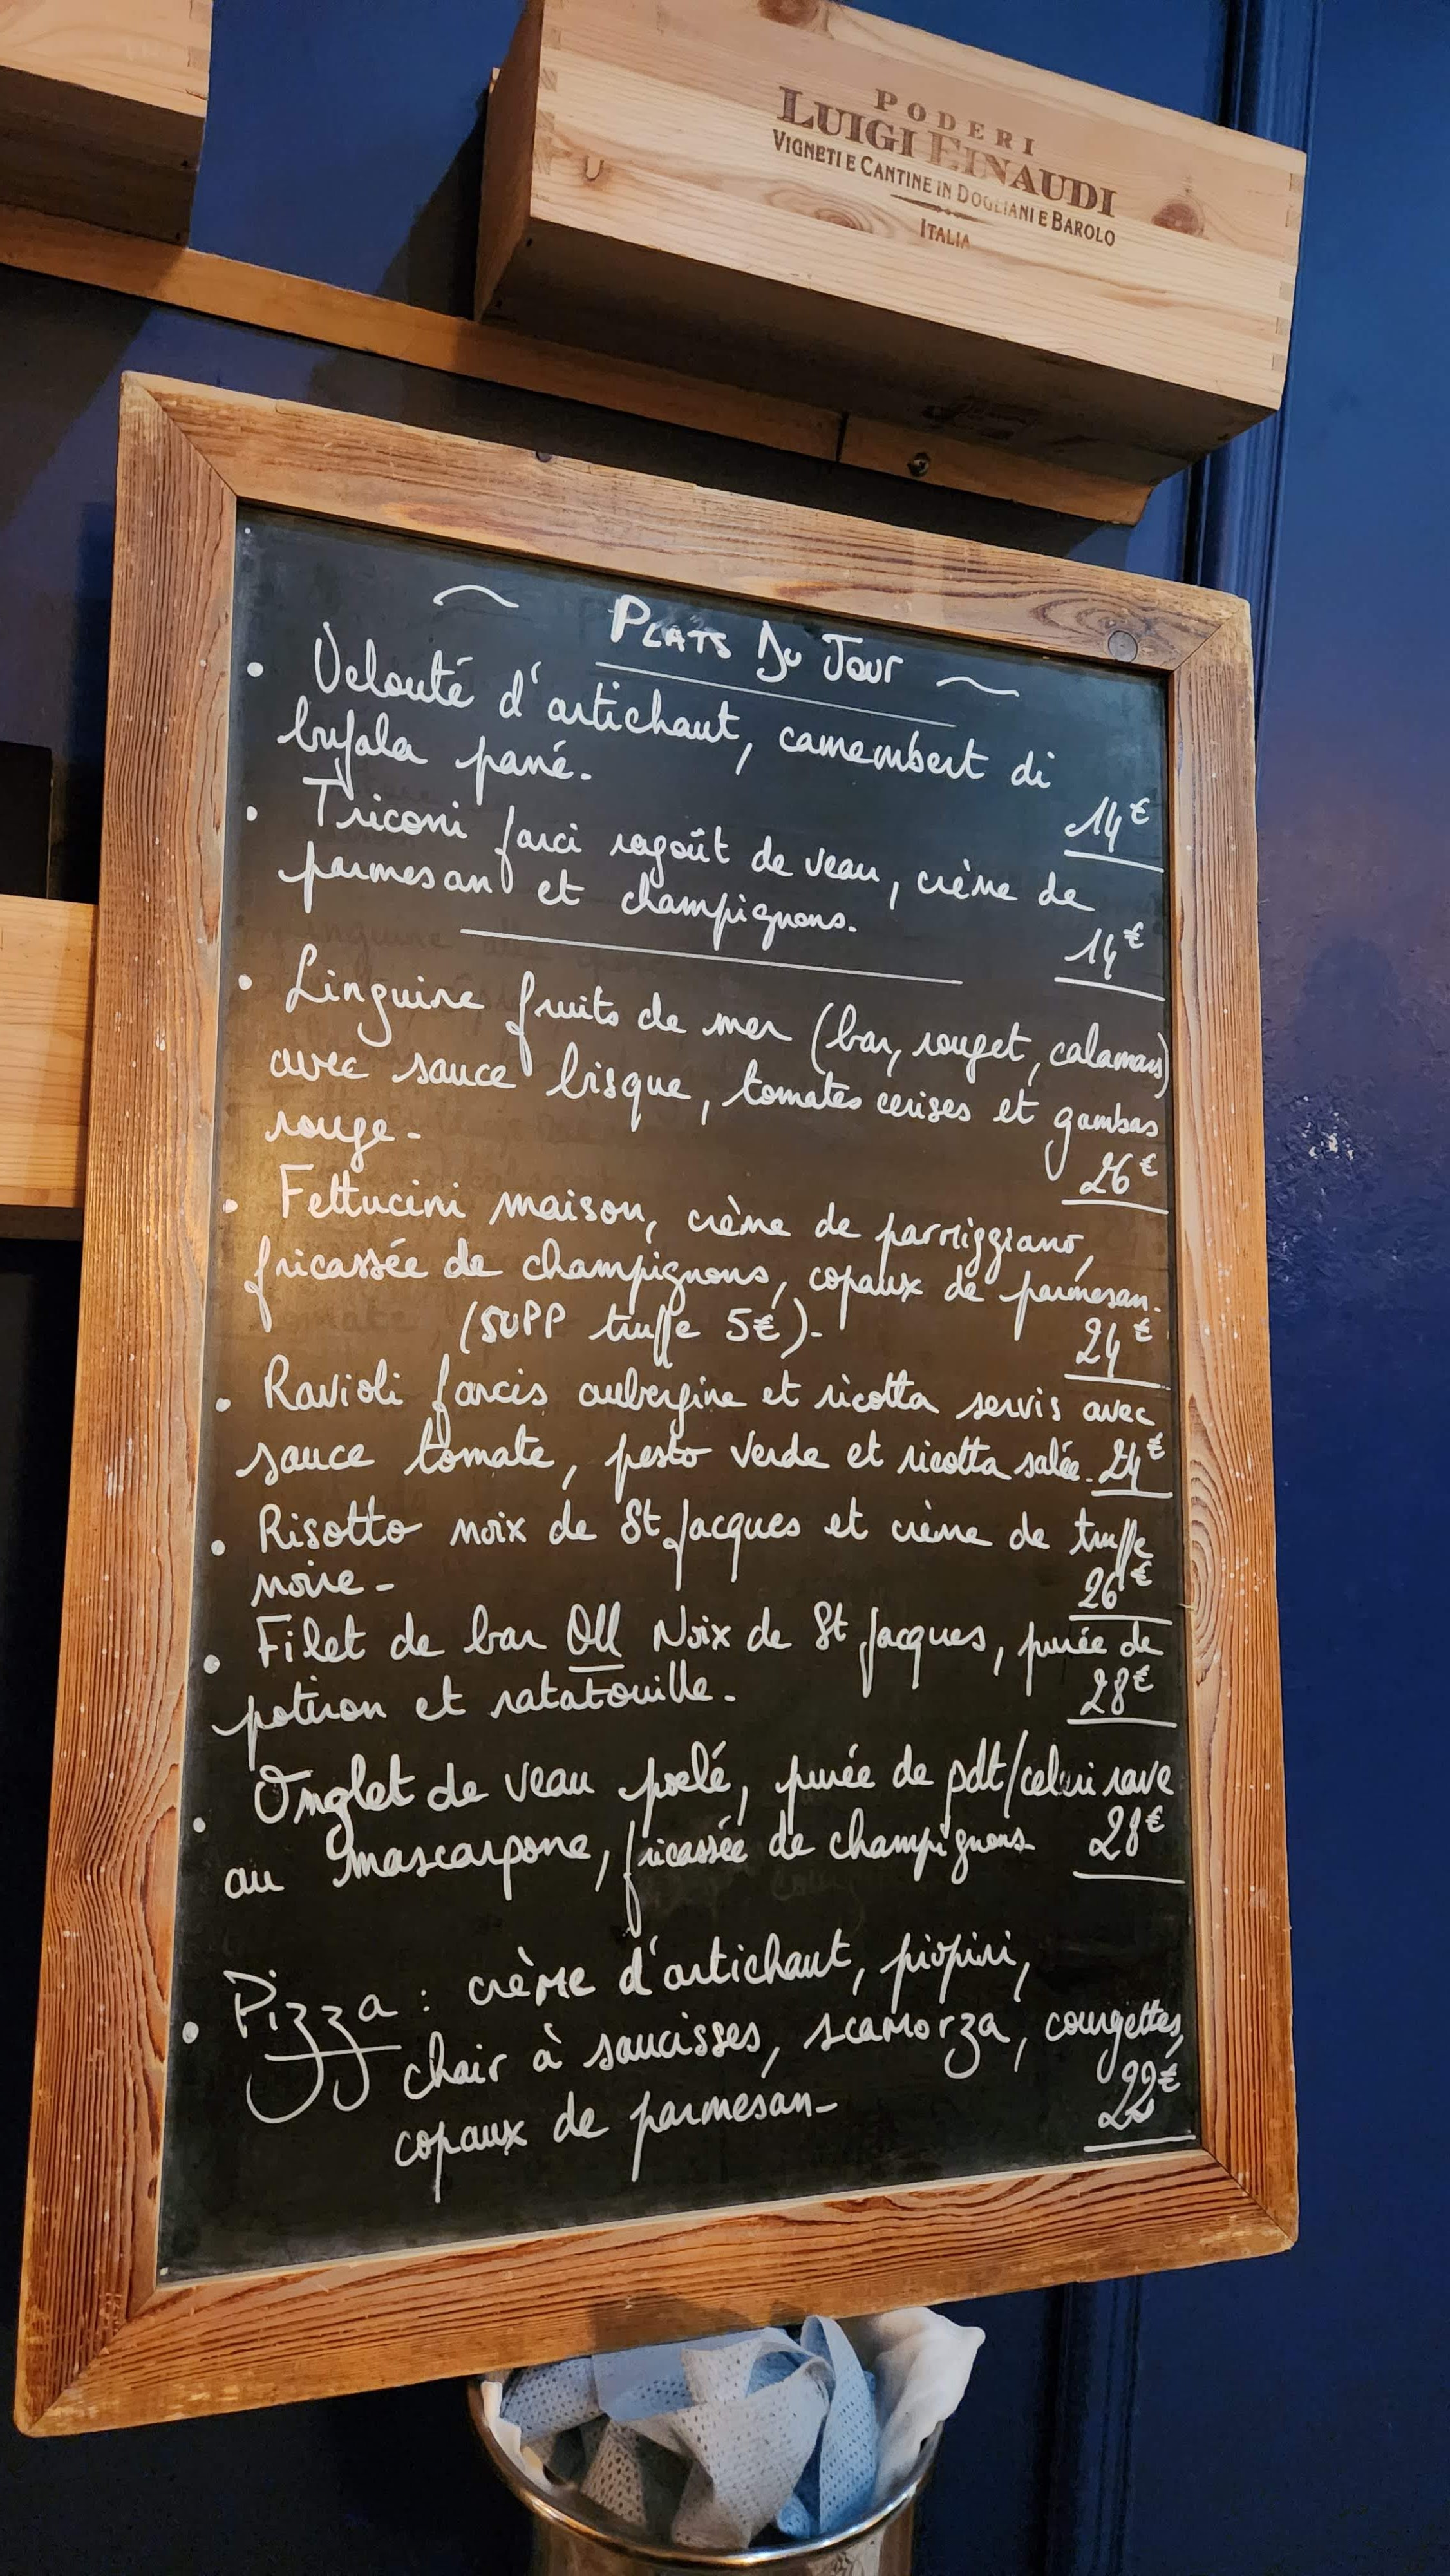 PODERI
LUIGI EINAUDI
VIGNETI E CANTINE IN DOGLIANI E BAROLO
ITALIA
PLATS DU JOUR
• Velouté d'artichaut, camembert di
bufala pané.
14€
• Triconi farci ragoût de veau, crème de
parmesan et champignons.
14€
• Linguine fruits de mer (bar, rouget, calamars)
avec sauce bisque, tomates cerises et gambas
rouge-
26€
• Fettucini maison, crème de parmiggiano,
fricassée de champignons, copaux de parmesan.
(SUPP truffe 5€)-
24€
• Ravioli farcis aubergine et ricotta servis avec
sauce tomate, pesto verde et ricotta salée. 24€
• Risotto noix de St Jacques et crème de truffe
noire-
26€
• Filet de bar OU Noix de St Jacques, purée de
potiron et ratatouille.
28€
• Onglet de veau poelé, purée de pdt/celeri rave
au mascarpone, fricassée de champignons 28€
• Pizza : crème d'artichaut, piopini,
chair à saucisses, scamorza, courgettes,
copaux de parmesan-
22€